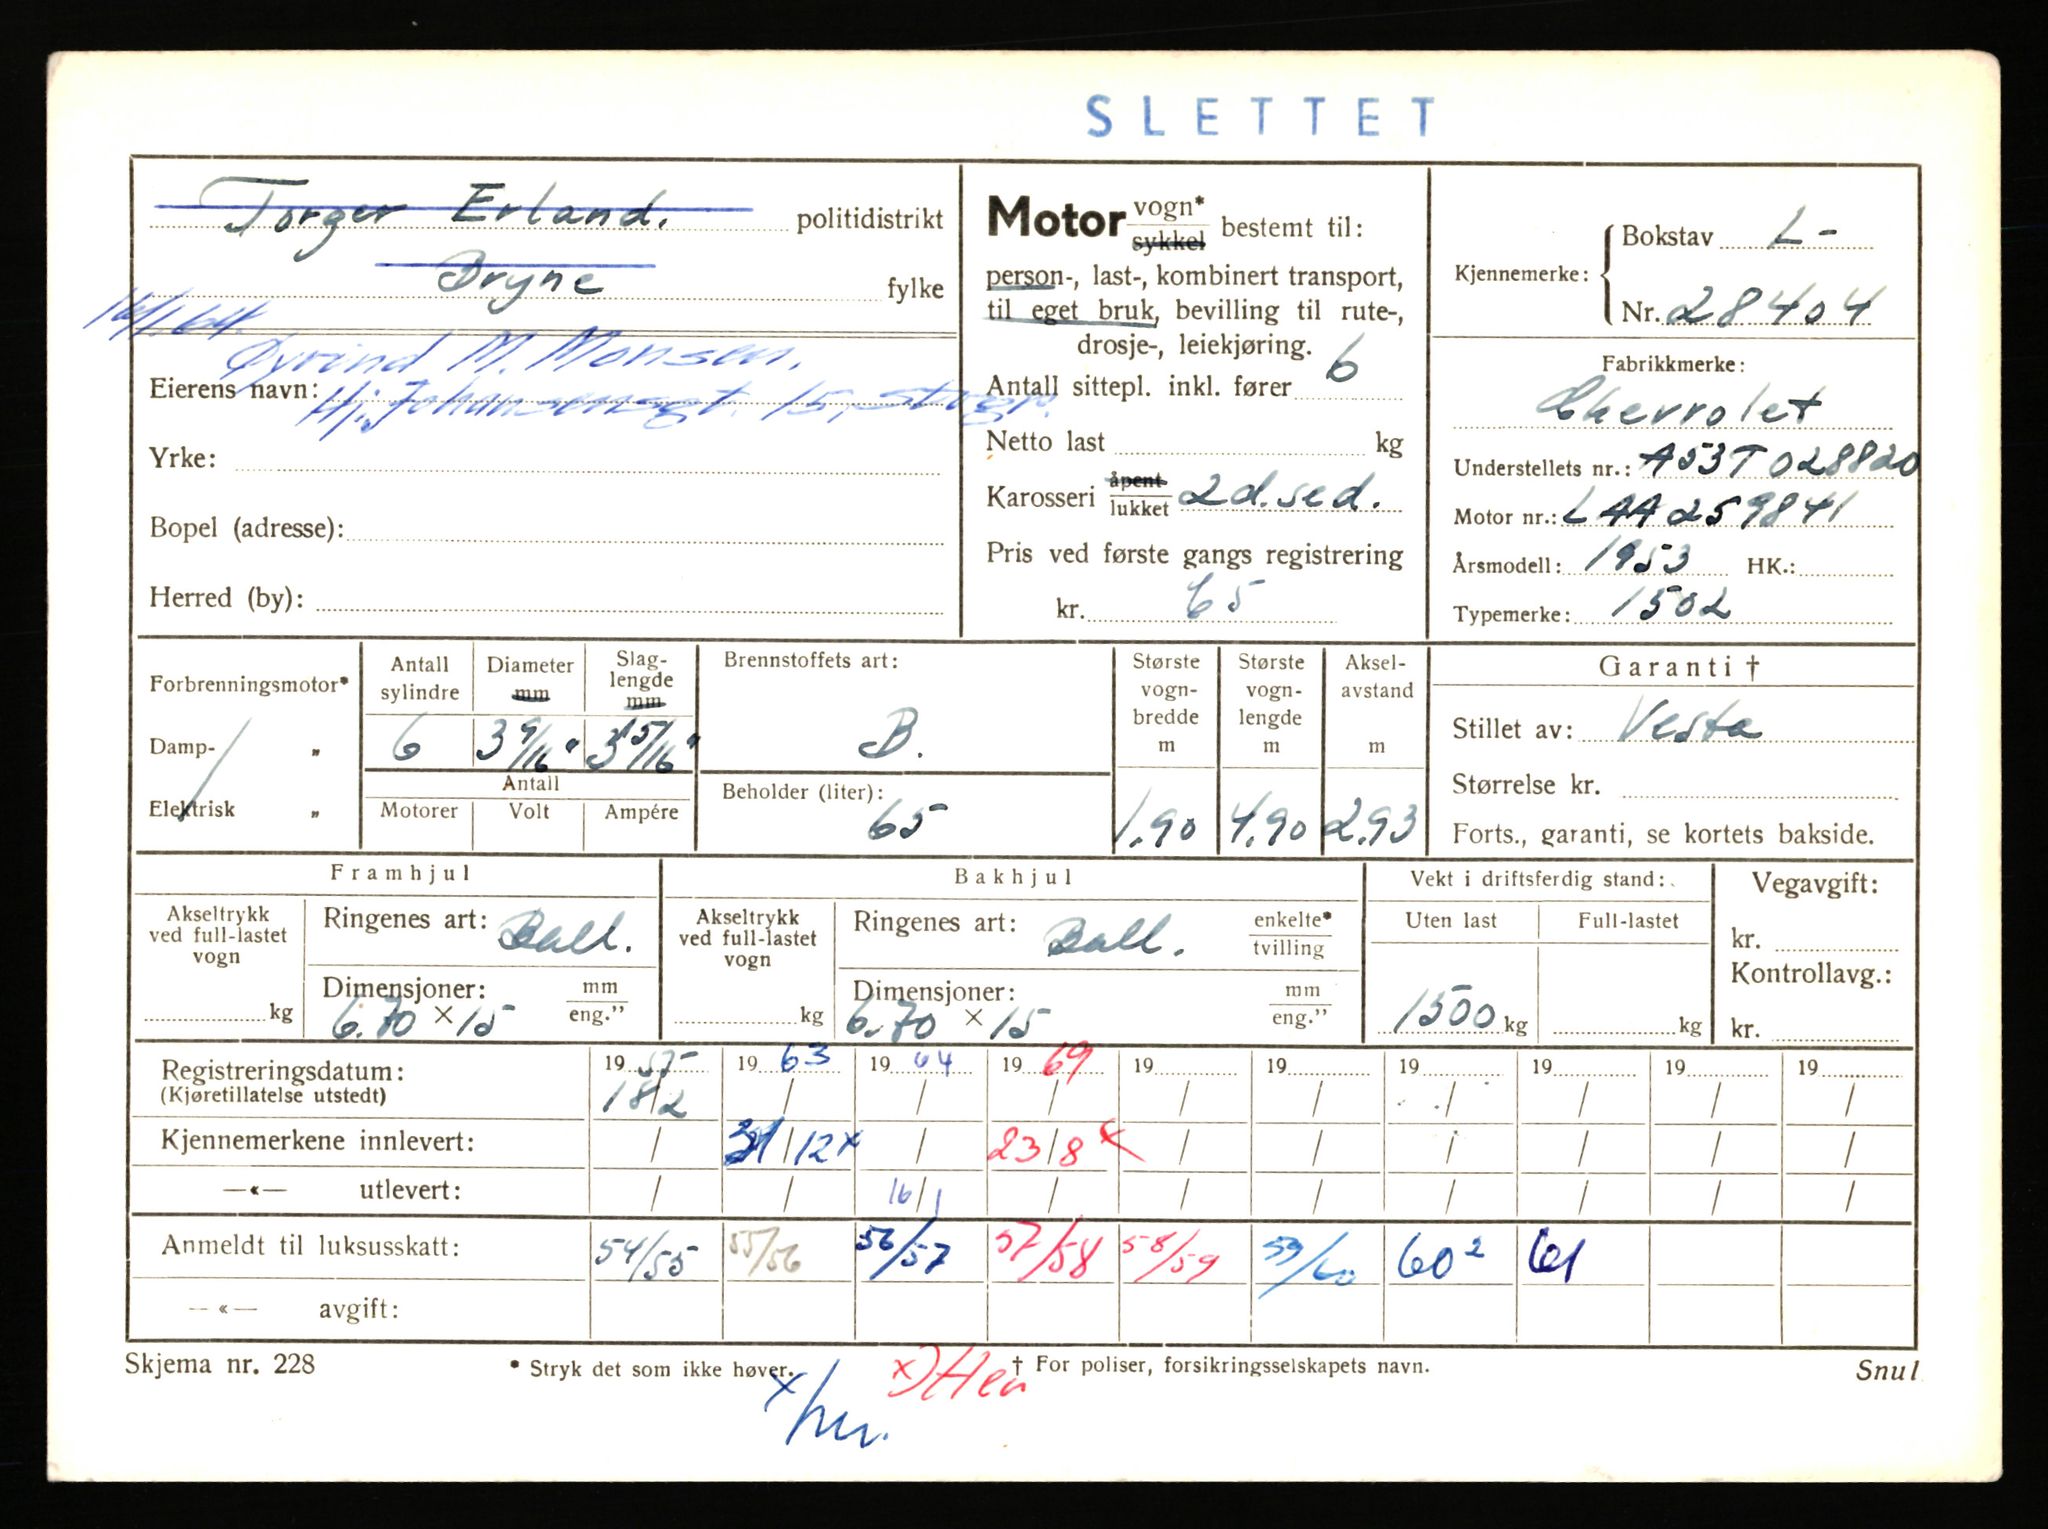 SLETTET
Torger Erland. politidistrikt
Bryne fylke
16/1.64.
Øyvind M. Monsen.
Eierens navn: Hj. Johansensgt. 15, Stvgr.
Yrke:
Bopel (adresse):
Herred (by):
Motor vogn* sykkel bestemt til:
person-, last-, kombinert transport,
til eget bruk, bevilling til rute-,
drosje-, leiekjøring.
Antall sittepl. inkl. fører 6
Netto last kg
Karosseri åpent lukket 2d.sed.
Pris ved første gangs registrering
kr. 65
Kjennemerke: Bokstav L-
Nr. 28404
Fabrikkmerke:
Chevrolet
Understellets nr.: A53T028820
Motor nr.: LAA259841
Årsmodell: 1953 HK.:
Typemerke: 1502
Forbrenningsmotor*
Damp- „
Elektrisk „
Antall sylindre
6
Diameter mm
3 9/16"
Slag-
lengde
mm
3 15/16"
Antall
Motorer Volt Ampére
Brennstoffets art:
B.
Beholder (liter):
65
Største
vogn-
bredde
m
1.90
Største
vogn-
lengde
m
4.90
Aksel-
avstand
m
2.93
Garanti †
Stillet av: Vesta
Størrelse kr.
Forts., garanti, se kortets bakside.
Framhjul
Akseltrykk
ved full-lastet
vogn
kg
Ringenes art: Ball.
Dimensjoner: mm eng."
6.70 × 15
Bakhjul
Akseltrykk
ved full-lastet
vogn
kg
Ringenes art: Ball. enkelte* tvilling
Dimensjoner: mm eng."
6.70 × 15
Vekt i driftsferdig stand:
Uten last Full-lastet
1500 kg kg
Vegavgift:
kr.
Kontrollavg.:
kr.
Registreringsdatum: 19 57 19 63 19 64 19 69 19 19 19 19 19 19
(Kjøretillatelse utstedt) 18/2 / / / / / / / / /
Kjennemerkene innlevert: / 31/12 x / 23/8 x / / / / / /
—«— utlevert: / / 16/1 / / / / / / /
Anmeldt til luksusskatt: 54/55 55/56 56/57 57/58 58/59 59/60 60² 61
—«— avgift:
Skjema nr. 228 * Stryk det som ikke høver. † For poliser, forsikringsselskapets navn. Snul